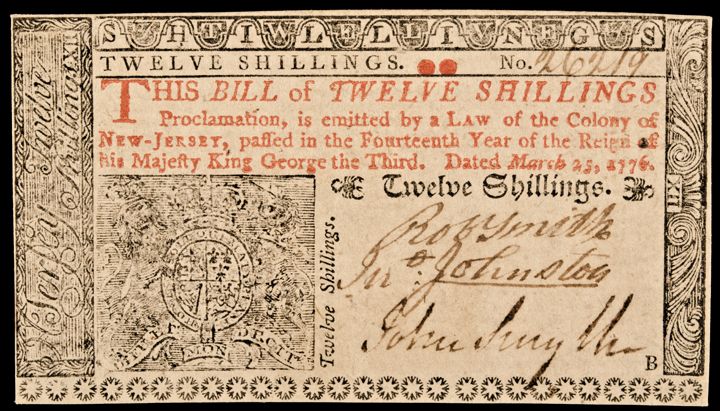 S H T I W L E L L I V N E G S
TWELVE SHILLINGS. No. 26219
THIS BILL of TWELVE SHILLINGS
Proclamation, is emitted by a LAW of the Colony of
NEW-JERSEY, paſſed in the Fourteenth Year of the Reign of
his Majeſty King George the Third. Dated March 25, 1776.
Twelve Shillings.
Robt Smith
Jno. Johnston
John Smyth
B
Twelve Shillings.
Jerſey Twelve
Shillings XII
XII
MON DROIT